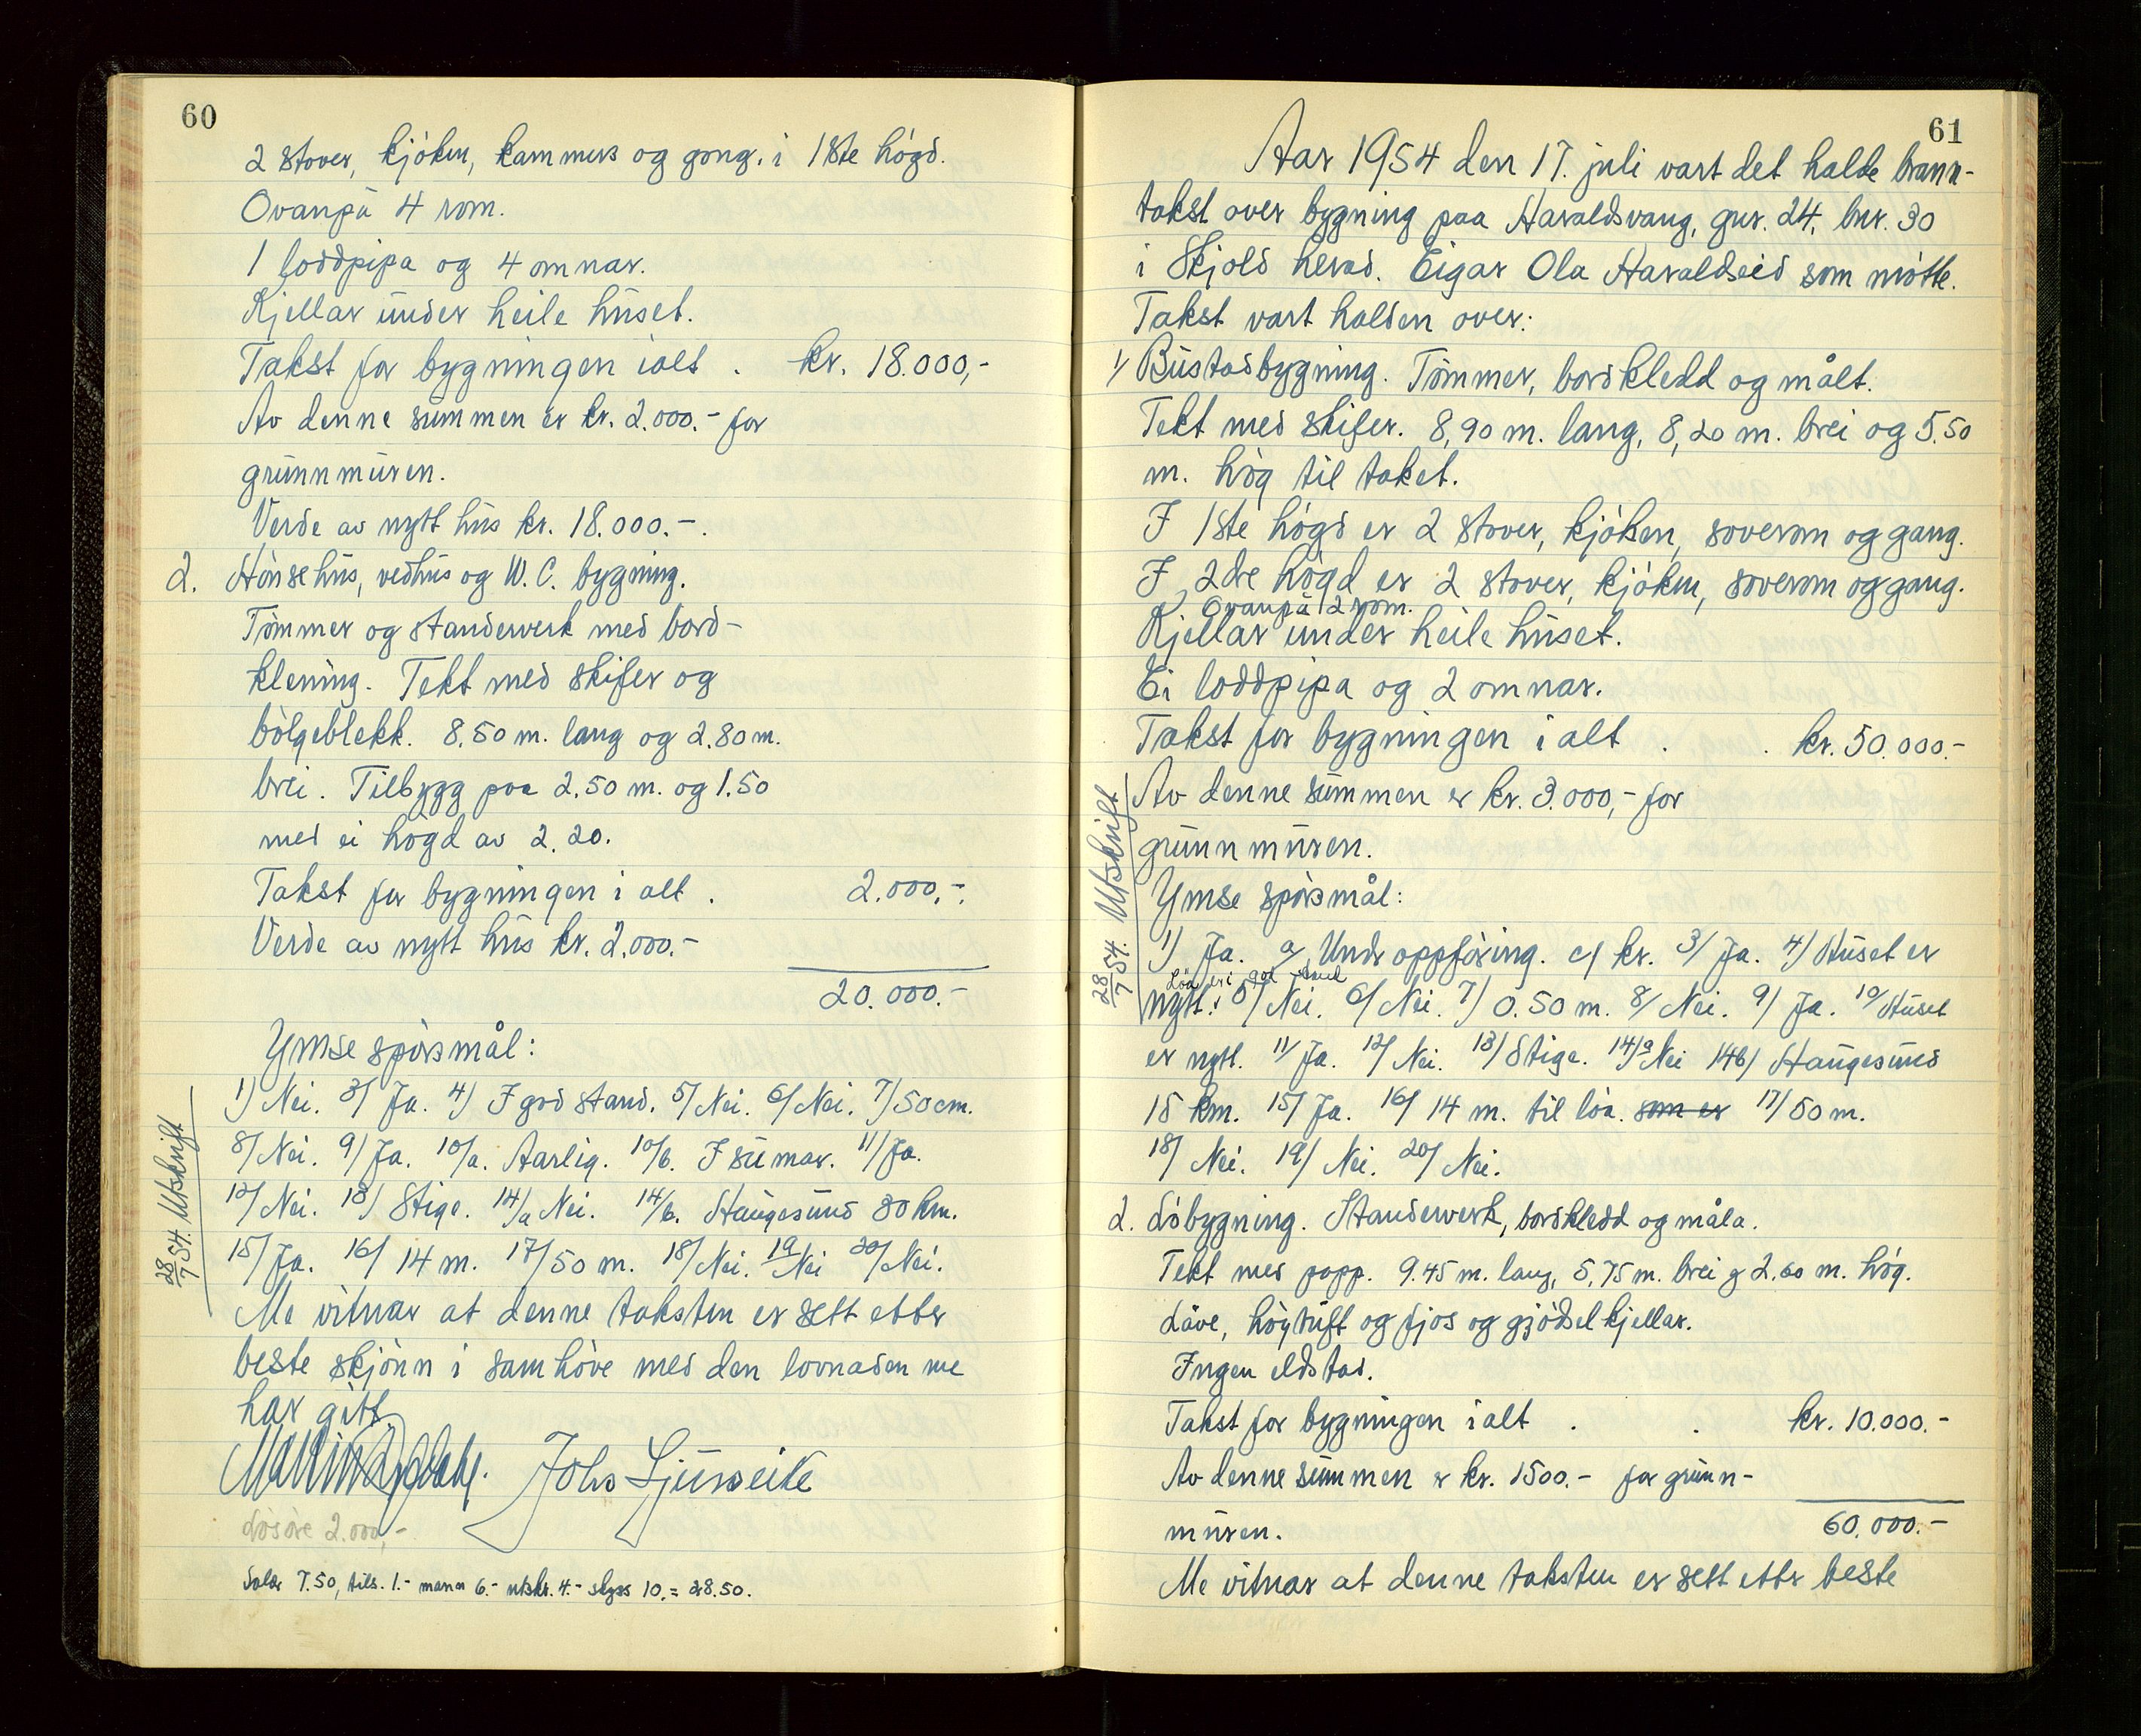 60
2 stover, kjöken, kammers og gong. i 1ste högd.
Ovanpå 4 rom.
1 loddpipa og 4 omnar.
Kjellar under heile huset.
Takst for bygningen ialt . kr. 18.000,-
Av denne summen er kr. 2.000.- for
grunnmuren.
Verde av nytt hus kr. 18.000.-.
2. Hönsehus, vedhus og W.C. bygning.
Tömmer og standerverk med bord-
klening. Tekt med skifer og
bölgeblekk. 8.50 m. lang og 2.80 m.
brei. Tilbygg paa 2.50 m. og 1.50
med ei högd av 2.20.
Takst for bygningen i alt . 2.000,-.
Verde av nytt hus kr. 2.000.-
20.000.-
Ymse spörsmål:
1) Nei. 3/ Ja. 4) I god stand. 5/ Nei. 6/ Nei. 7/ 50 cm.
8/ Nei. 9/ Ja. 10/a. Aarlig. 10/b. I sumar. 11/ Ja.
12/ Nei. 13/ Stige. 14/a Nei. 14/b. Haugesund 30 km.
15/ Ja. 16/ 14 m. 17/ 50 m. 18/ Nei. 19 Nei 20/ Nei.
28/7 54. Utskrift
Me vitnar at denne taksten er sett etter
beste skjönn i samhöve med den lovnaden me
har gitt.
Johs Ljusveite
Lösöre 2.000,-
Salær 7.50, tils. 1.- mann 6.- utskr. 4.- skyss 10.= 28.50.
61
Aar 1954 den 17. juli vart det halde brann-
takst over bygning paa Haraldsvang, gnr. 24, bnr. 30
i Skjold herad. Eigar Ola Haraldseid som mötte.
Takst vart halden over:
1/ Bustadbygning. Tömmer, bordkledd og målt.
Tekt med skifer. 8,90 m. lang, 8,20 m. brei og 5.50
m. hög til taket.
I 1ste högd er 2 stover, kjöken, soverom og gang.
I 2dre högd er 2 stover, kjöken, soverom og gang.
Ovanpå 2 rom.
Kjellar under heile huset.
Ei loddpipa og 2 omnar.
Takst for bygningen i alt . . kr. 50.000.-
Av denne summen er kr. 3.000,- for
grunnmuren.
28/7 54. Utskrift
Ymse spörsmål:
1) Ja. a/ Under oppföring. c/ kr. 3/ Ja. 4/ Huset er
Löa er i god stand
nytt. 5/ Nei. 6/ Nei. 7/ 0.50 m. 8/ Nei. 9/ Ja. 10/ Huset
er nytt. 11/ Ja. 12/ Nei. 13/ Stige. 14/a Nei 14b/ Haugesund
15 km. 15/ Ja. 16/ 14 m. til löa. som er 17/ 50 m.
18/ Nei. 19/ Nei. 20/ Nei.
2. Löbygning. Standerverk, bordkledd og måla.
Tekt med papp. 9.45 m. lang, 5,75 m. brei og 2.60 m. hög.
Låve, höytuft og fjos og gjödselkjellar.
Ingen eldstad.
Takst for bygningen i alt . . kr. 10.000.-
Av denne summen er kr. 1500.- for grunn-
muren. 60.000.-
Me vitnar at denne taksten er sett etter beste